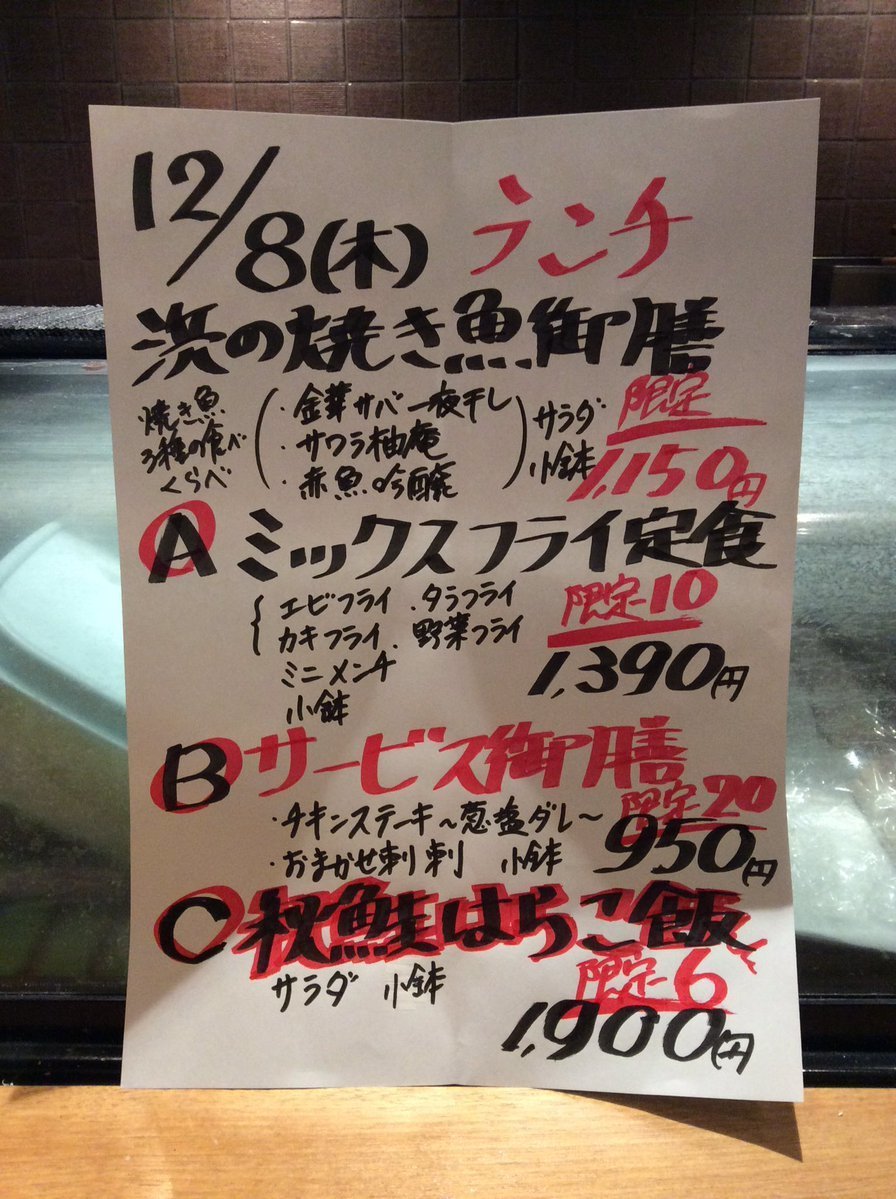 12/8(木) ランチ
浜の焼き魚御膳
焼き魚
3種の食べ
くらべ
・金華サバ一夜干し
・サワラ柚庵
・赤魚吟醸
サラダ
小鉢
限定
1,150円
A ミックスフライ定食
エビフライ.タラフライ
カキフライ.野菜フライ
ミニメンチ
小鉢
限定10
1,390円
B サービス御膳
限定20
・チキンステーキ〜葱塩ダレ〜
・おまかせ刺刺 小鉢
950円
C 秋鮭はらこ飯
サラダ 小鉢
限定6
1,900円